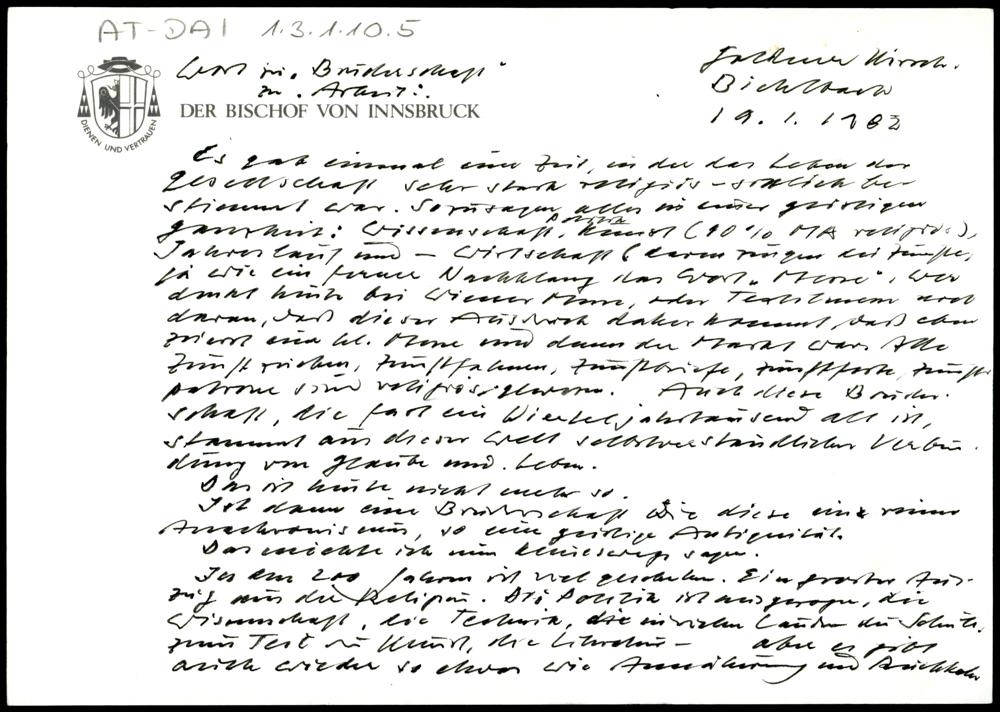 AT-DAI 1.3.1.10.5
Wort zu „Bruderschaft"
zu „Arbeit":
Goldener Hirsch.
Bichlbach
19.1.1983
DIENEN UND VERTRAUEN
DER BISCHOF VON INNSBRUCK
Es gab einmal eine Zeit, in der das Leben der
Gesellschaft sehr stark religiös-sittlich be-
stimmt war. Sozusagen alles in einer geistigen
Ganzheit: Wissenschaft, Politik, Kunst (90% MA religiös),
Jahreslauf und – Wirtschaft (davon zeugen die Zünfte,
ja wie ein ferner Nachklang das Wort „Messe". Wer
denkt heute bei Wiener Messe, oder Textilmesse noch
daran, daß dieser Ausdruck daher kommt, daß eben
zuerst eine hl. Messe und dann der Markt war. Alle
Zunftzeichen, Zunftfahnen, Zunftbriefe, Zunftfeste, Zunft-
patrone sind religiös gewesen. Auch diese Bruder-
schaft, die fast ein Vierteljahrtausend alt ist,
stammt aus dieser Welt selbstverständlicher Verbin-
dung von Glaube und Leben.
Das ist heute nicht mehr so.
Ist dann eine Bruderschaft wie diese ein reiner
Anachronismus, so eine geistige Antiquität.
Das möchte ich nun keineswegs sagen.
In den 200 Jahren ist viel geschehen. Ein großer Aus-
zug aus der Religion. Die Politik ist ausgezogen, die
Wissenschaft, die Technik, die in vielen Landen die Schule,
zum Teil die Kunst, die Literatur – aber es gibt
auch wieder so etwas wie Annäherung und Rückkehr